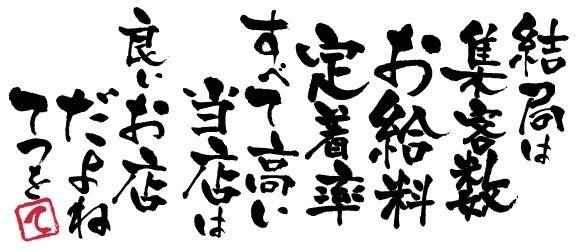 結局は
集客数
お給料
定着率
すべて高い
当店は
良いお店
だよね
てつを
て